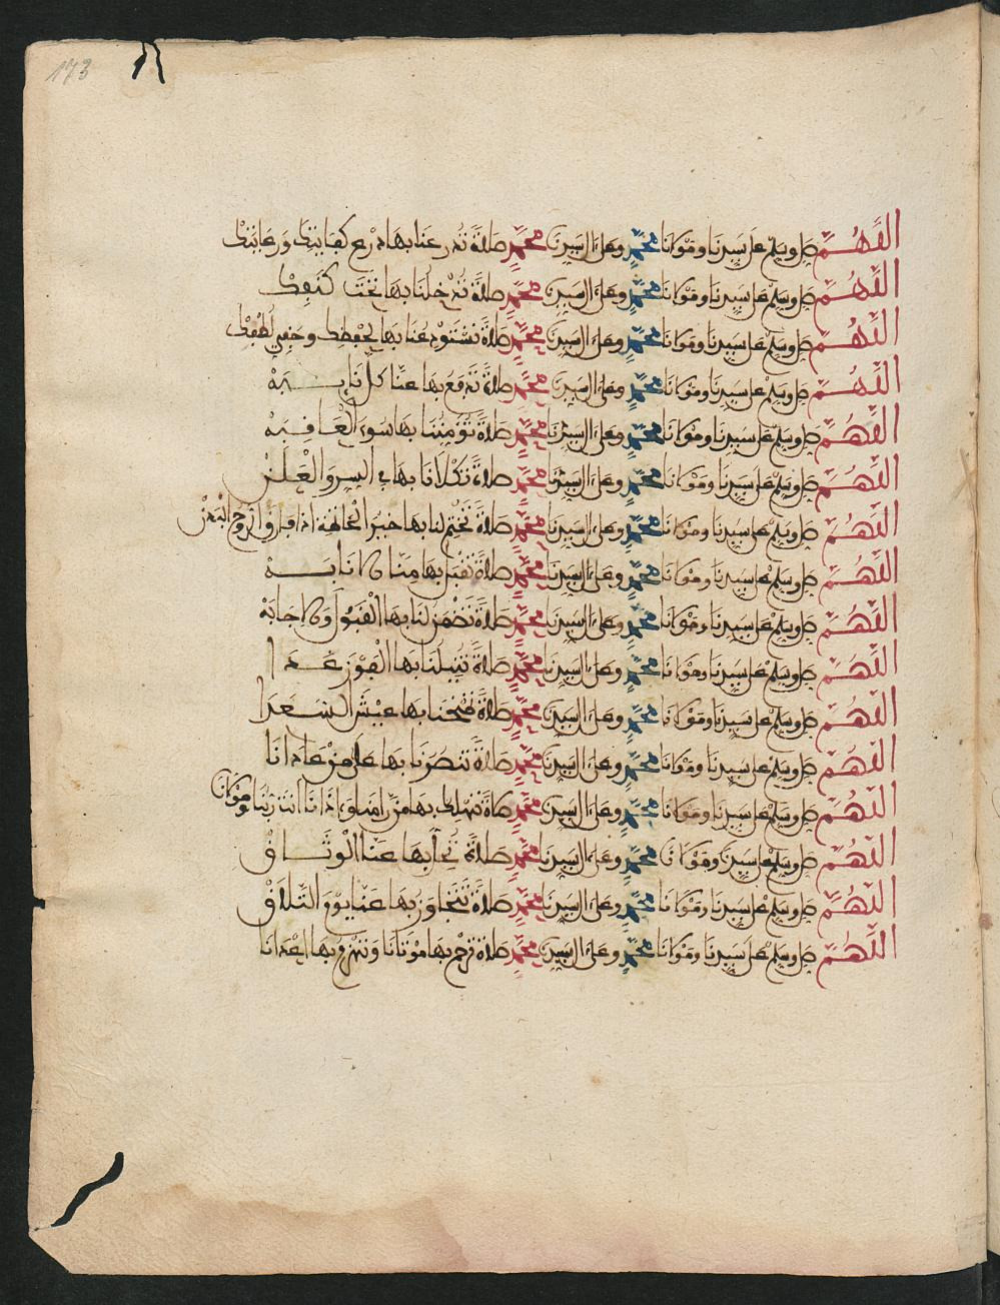 173
اللهم صل وسلم على سيدنا ومولانا محمد وعلى ال سيدنا محمد صلاة عنا بها درع كفايتك ورعايتك
اللهم صل وسلم على سيدنا ومولانا محمد وعلى ال سيدنا محمد صلاة تدخلنا بها تحت كنفك
اللهم صل وسلم على سيدنا ومولانا محمد وعلى ال سيدنا محمد صلاة بها بحفظك وخفي لطفك
اللهم صل وسلم على سيدنا ومولانا محمد وعلى ال سيدنا محمد صلاة تدفع بها عنا كل نايبة
اللهم صل وسلم على سيدنا ومولانا محمد وعلى ال سيدنا محمد صلاة تؤمننا بها سوء العاقبة
اللهم صل وسلم على سيدنا ومولانا محمد وعلى ال سيدنا محمد صلاة تكلانا بها في السر والعلن
اللهم صل وسلم على سيدنا ومولانا محمد وعلى ال سيدنا محمد صلاة تختم لنا بها خير الخاتمة اذا فارق الروح البدن
اللهم صل وسلم على سيدنا ومولانا محمد وعلى ال سيدنا محمد صلاة تقبل بها منا الانابة
اللهم صل وسلم على سيدنا ومولانا محمد وعلى ال سيدنا محمد صلاة تضمن لنا بها القبول والاجابة
اللهم صل وسلم على سيدنا ومولانا محمد وعلى ال سيدنا محمد صلاة تنيلنا بها الفوز غدا
اللهم صل وسلم على سيدنا ومولانا محمد وعلى ال سيدنا محمد صلاة تمنحنا بها عيش السعدا
اللهم صل وسلم على سيدنا ومولانا محمد وعلى ال سيدنا محمد صلاة تنصرنا بها على من عادانا
اللهم صل وسلم على سيدنا ومولانا محمد وعلى ال سيدنا محمد صلاة تهلك بها من انت ربنا ومولانا
اللهم صل وسلم على سيدنا ومولانا محمد وعلى ال سيدنا محمد صلاة بها عنا الوثاق
اللهم صل وسلم على سيدنا ومولانا محمد وعلى ال سيدنا محمد صلاة تتجاوز بها عنا يوم التلاق
اللهم صل وسلم على سيدنا ومولانا محمد وعلى ال سيدنا محمد صلاة ترحم بها موتانا بها اعدانا